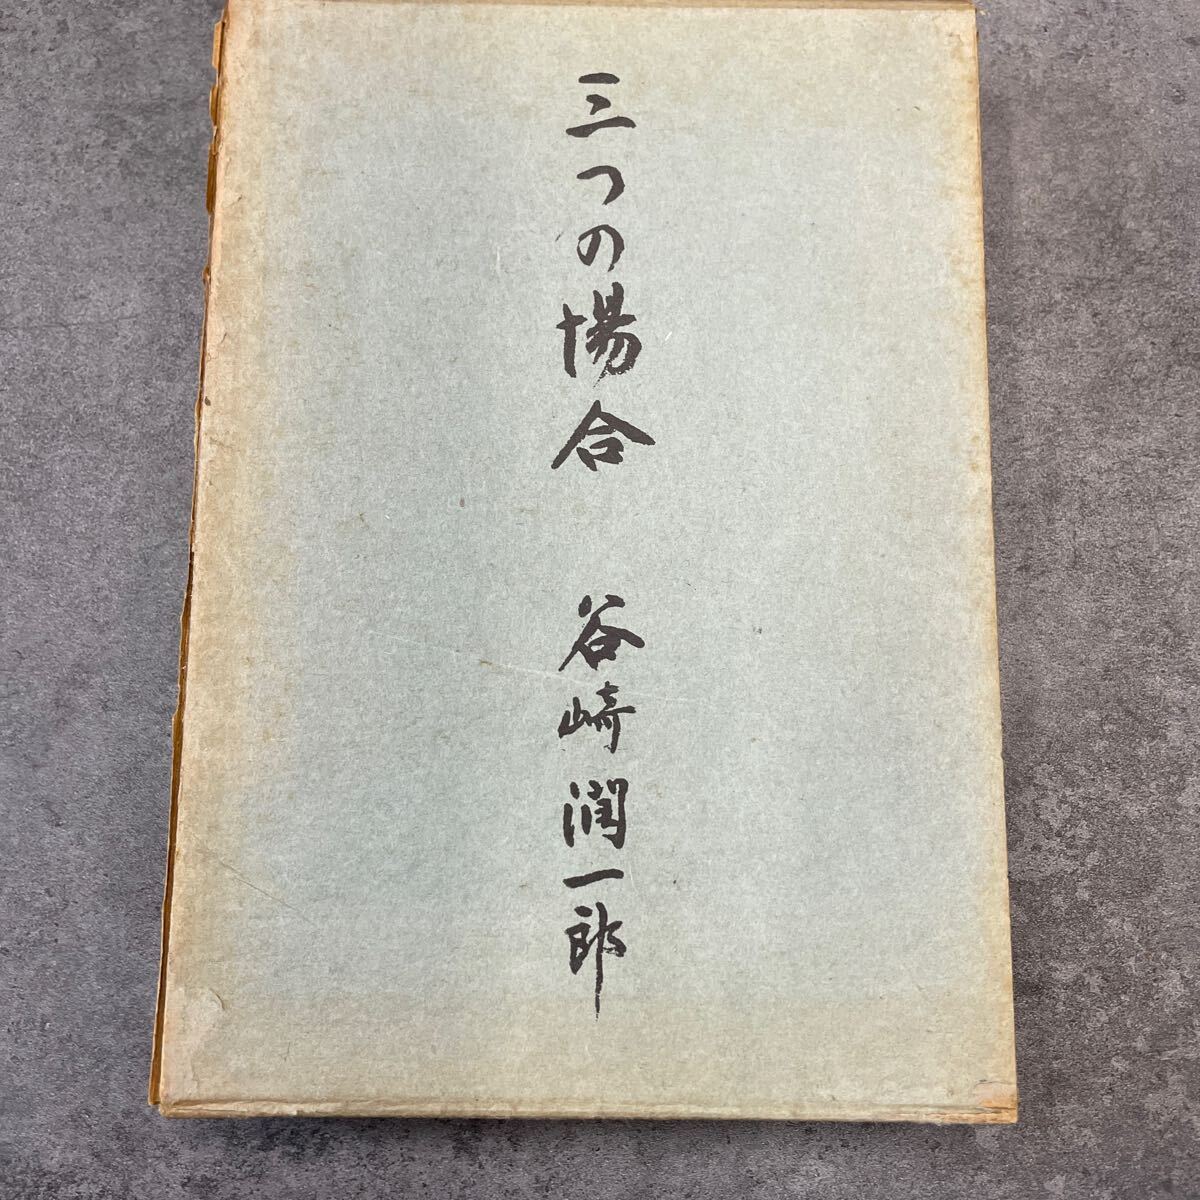 三つの場合 谷崎潤一郎